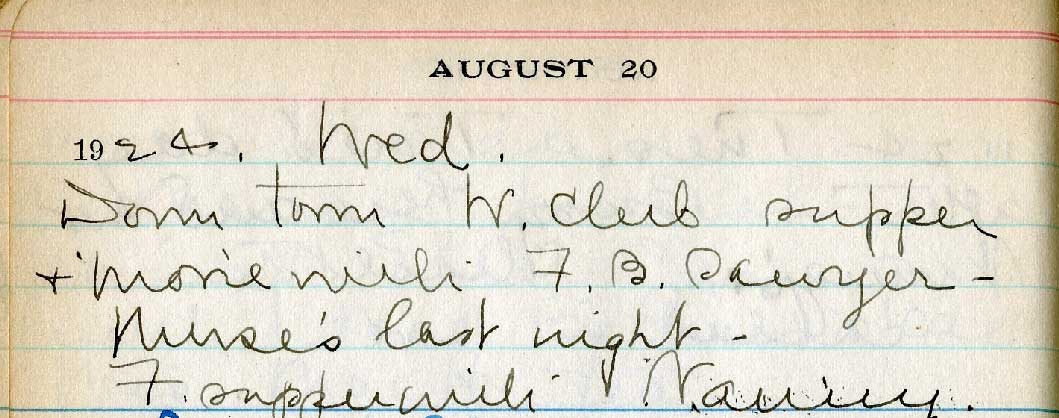 AUGUST 20
1924. Wed.
Down Town W. Club supper
+ movie with F. B. Sawyer -
Nurse's last night -
F. supper with